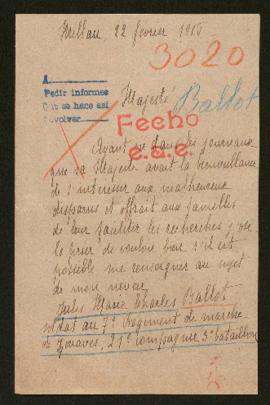 Millau 22 février 1916
3020
A
Pedir informes
Que se hace así
devolver
Majesté
Ballot
Fecho
e.a.e.
Ayant vu dans les journaux
que sa Majesté avait la bienveillance
de s'intéresser aux malheureux
disparus et offrait aux familles
de leur faciliter les recherches je
le prier de vouloir bien s'il est
possible me renseigner au sujet
de mon neveu
Jules Marie Charles Ballot
soldat au 7e Régiment de marche
de Zouaves, 21e compagnie 5e bataillon